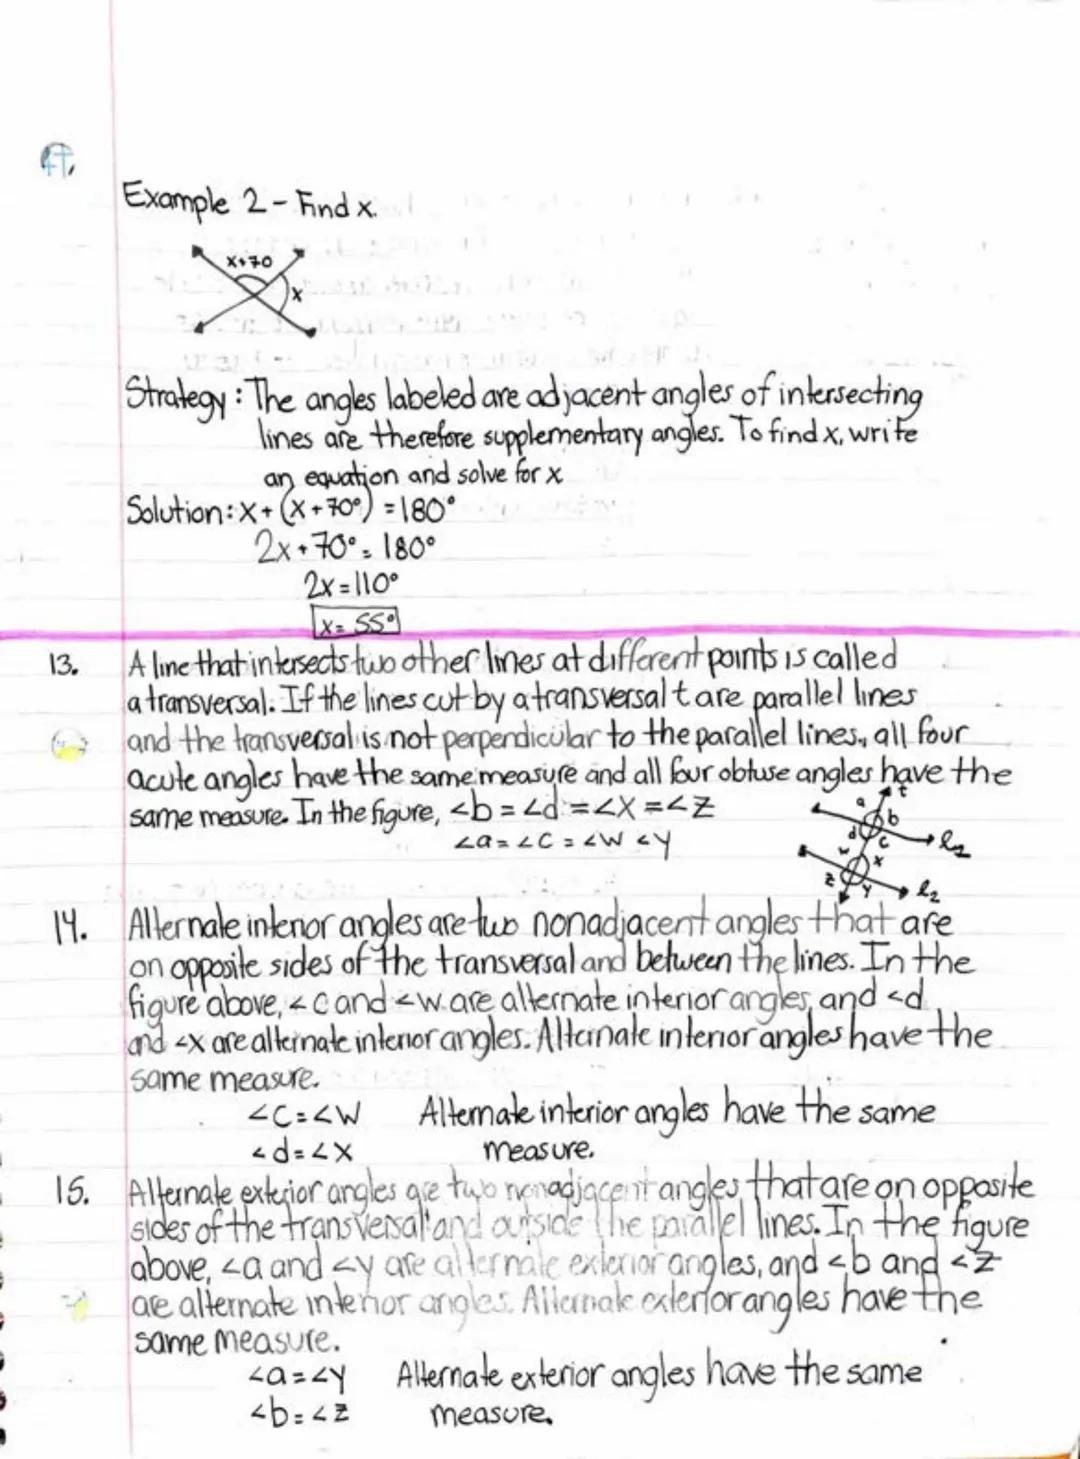 Example 2 - Find x.
x+70
x
Strategy: The angles labeled are adjacent angles of intersecting
lines are therefore supplementary angles. To find x, write
an equation and solve for x
Solution: x + (x + 70°) = 180°
2x + 70° = 180°
2x = 110°
x = 55°
13. A line that intersects two other lines at different points is called
a transversal. If the lines cut by a transversal t are parallel lines
and the transversal is not perpendicular to the parallel lines, all four
acute angles have the same measure and all four obtuse angles have the
same measure. In the figure, <b = <d = <x = <z
<a = <c = <w <y
t
a b
d c
l2
w x
z y
l2
14. Alternate interior angles are two nonadjacent angles that are
on opposite sides of the transversal and between the lines. In the
figure above, <c and <w are alternate interior angles, and <d
and <x are alternate interior angles. Alternate interior angles have the
same measure.
<c = <w Alternate interior angles have the same
<d = <x measure.
15. Alternate exterior angles are two nonadjacent angles that are on opposite
sides of the transversal and outside the parallel lines. In the figure
above, <a and <y are alternate exterior angles, and <b and <z
are alternate interior angles. Alternate exterior angles have the
same measure.
<a = <y Alternate exterior angles have the same
<b = <z measure.